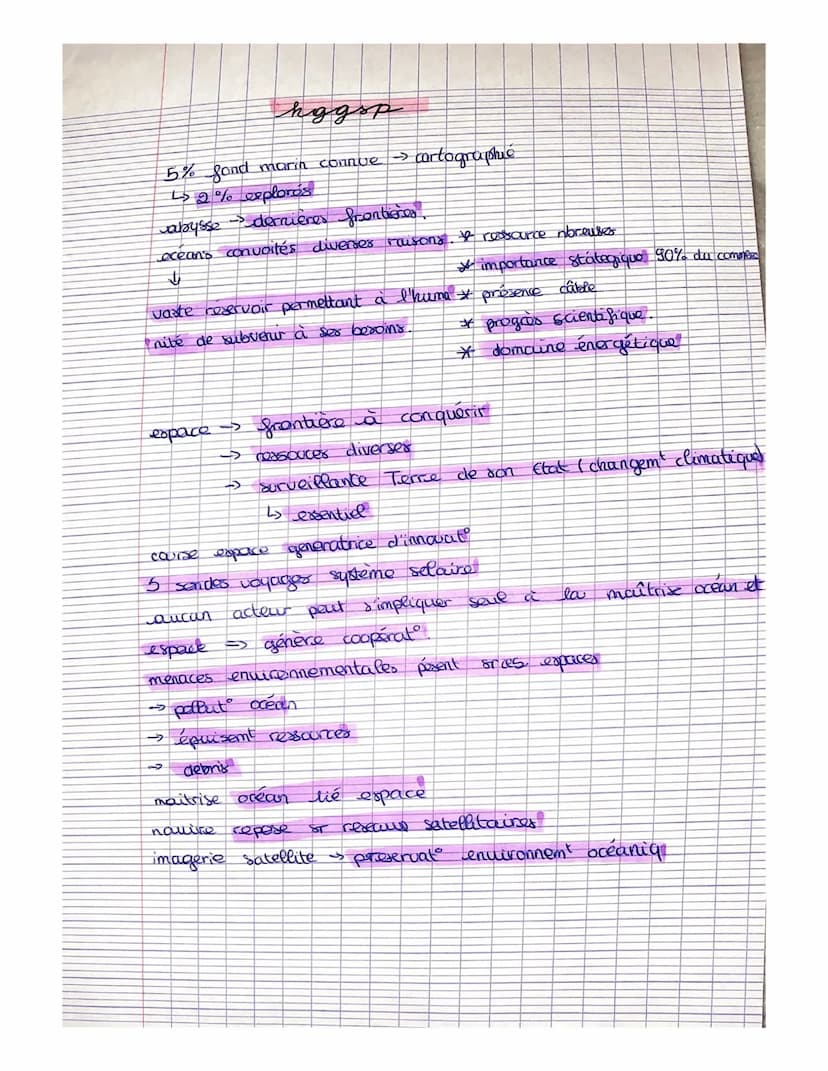 hggsp
5% fond marin connue -> cartographié
↳ 2% explorés
abysse -> dernières frontières.
océans convoités diverses raisons. * ressource nbreuses
↓ * importance statégique 90% du commerce
vaste réservoir permettant à l'huma * présence câble
nité de subvenir à ses besoins. * progrès scientifique.
* domaine énergétique
espace -> frontière à conquérir
-> ressouces diverses
-> surveillante Terre de son Etat (changemt climatique)
↳ essentiel
course espace generatrice d'innovat°
5 sondes voyages système solaire
aucun acteur peut s'impliquer seul à la maîtrise océan et
espace => génère coopérat°.
menaces environnementales pèsent sr ces espaces
-> pollut° océan
-> épuisemt ressources
-> debris
maitrise océan lié espace
navire repose sr reseaux satellitaires
imagerie satellite -> preservat° environnemt océaniq